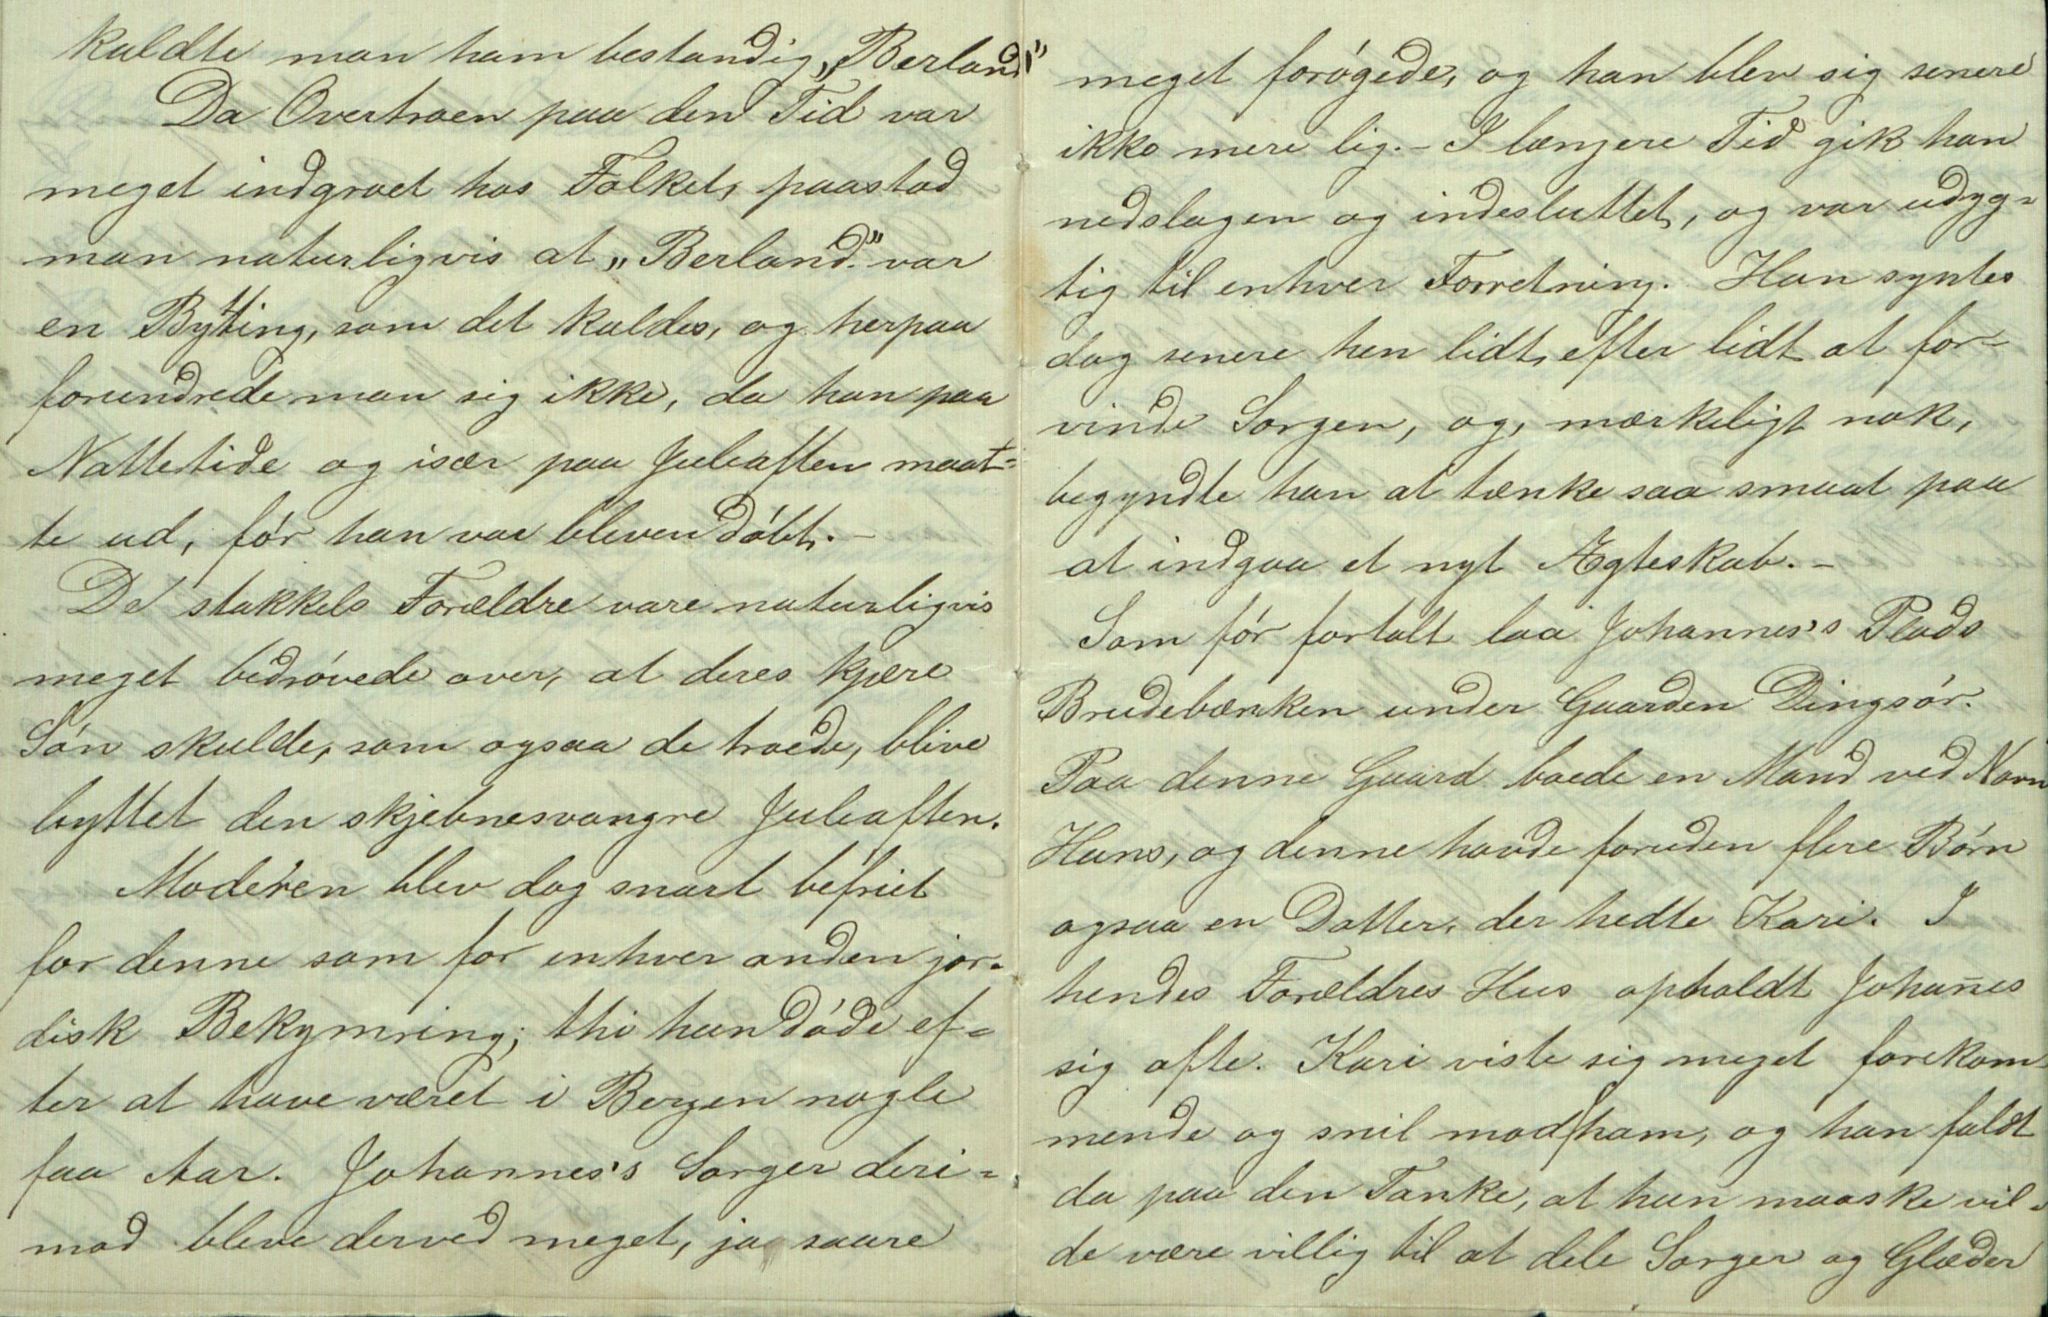 kaldte man ham bestandig „Berland"
Da Overtroen paa den Tid var
meget indgroet hos Folket, paastod
man naturligvis at „Berland" var
en Bytting, som det kaldes, og herpaa
forundrede man sig ikke, da han paa
Nattetide og især paa Juleaften maat=
te ud, før han var bleven døbt. –
De stakkels Forældre vare naturligvis
meget bedrøvede over, at deres kjære
Søn skulde, som ogsaa de troede, blive
byttet den skjebnesvangre Juleaften.
Moderen blev dog snart befriet
for denne som for enhver anden jor=
disk Bekymring; thi hun døde ef=
ter at have været i Bergen nogle
faa Aar. Johannes's Sorger deri=
mod bleve derved meget, ja saare
meget forøgede, og han blev sig senere
ikke mere lig. – I længere Tid gik han
nedslagen og indesluttet, og var udyg=
tig til enhver Forretning. Han syntes
dog senere hen lidt efter lidt at for=
vinde Sorgen, og, mærkeligt nok,
begyndte han at tænke saa smaat paa
at indgaa et nyt Ægteskab. –
Som før fortalt laa Johannes's Plads
Brudebænken under Gaarden Dingsør.
Paa denne Gaard boede en Mand ved Navn
Hans, og denne havde foruden flere Børn
ogsaa en Datter, der hedte Kari. I
hendes Forældres Hus opholdt Johan̄es
sig ofte. Kari viste sig meget forekom=
mende og snil mod ham, og han faldt
da paa den Tanke, at hun maaske vil=
de være villig til at dele Sorger og Glæder